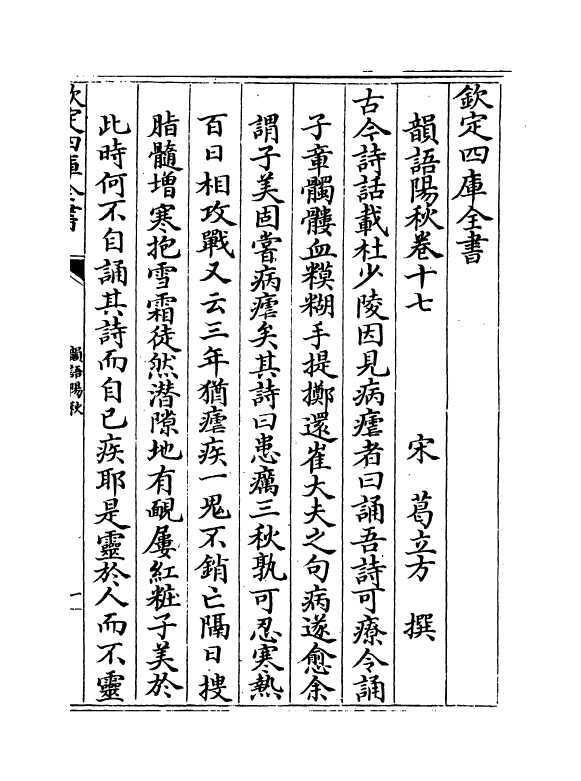 欽定四庫全書
韻語陽秋卷十七
宋 葛立方 撰
古今詩話載杜少陵因見病瘧者曰誦吾詩可療令誦
子章髑髏血糢糊手提擲還崔大夫之句病遂愈余
謂子美固嘗病瘧矣其詩曰患癘三秋孰可忍寒熱
百日相攻戰又云三年猶瘧疾一鬼不銷亡隔日搜
脂髓增寒抱雪霜徒然潛隙地有靦屢紅粧子美於
此時何不自誦其詩而自已疾耶是靈於人而不靈
欽定四庫全書
韻語陽秋
一